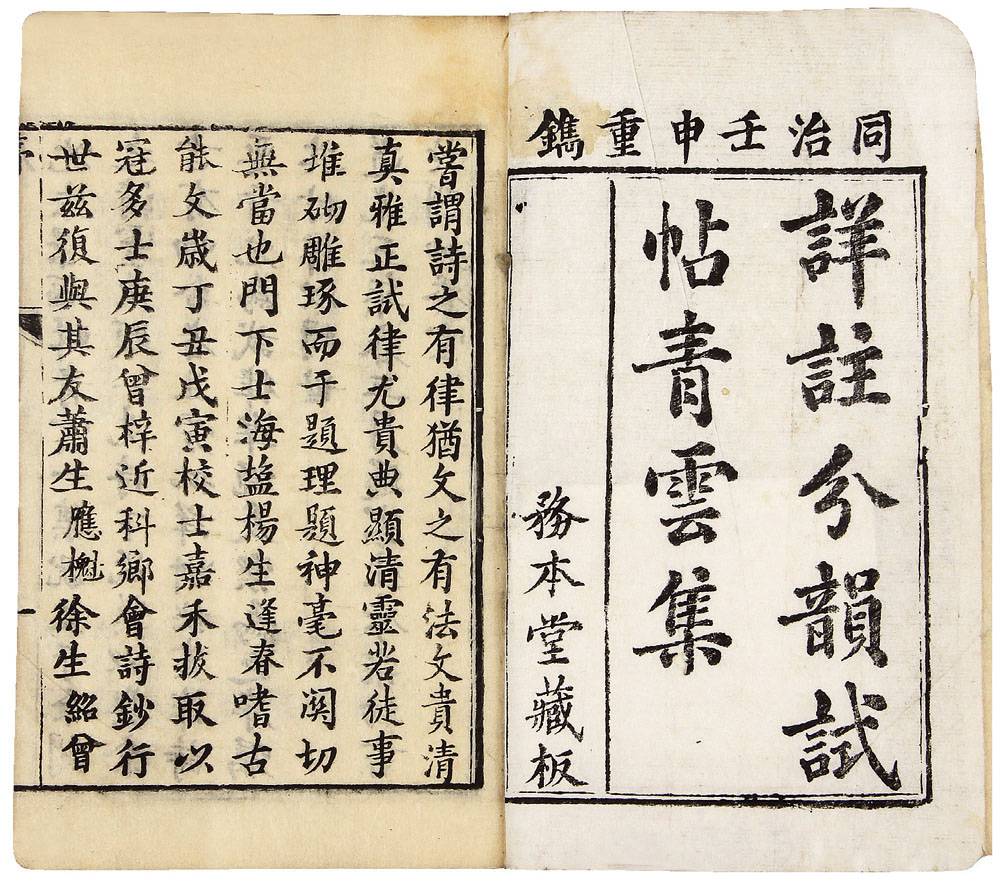 同治壬申重鐫
詳註分韻試
帖青雲集
務本堂藏板
嘗謂詩之有律猶文之有法文貴清
真雅正試律尤貴典顯清靈若徒事
堆砌雕琢而于題理題神毫不関切
無當也門下士海塩楊生逢春嗜古
能文歲丁丑戊寅校士嘉禾拔取以
冠多士庚辰曾梓近科鄉會詩鈔行
世茲復與其友蕭生應櫆徐生紹曾